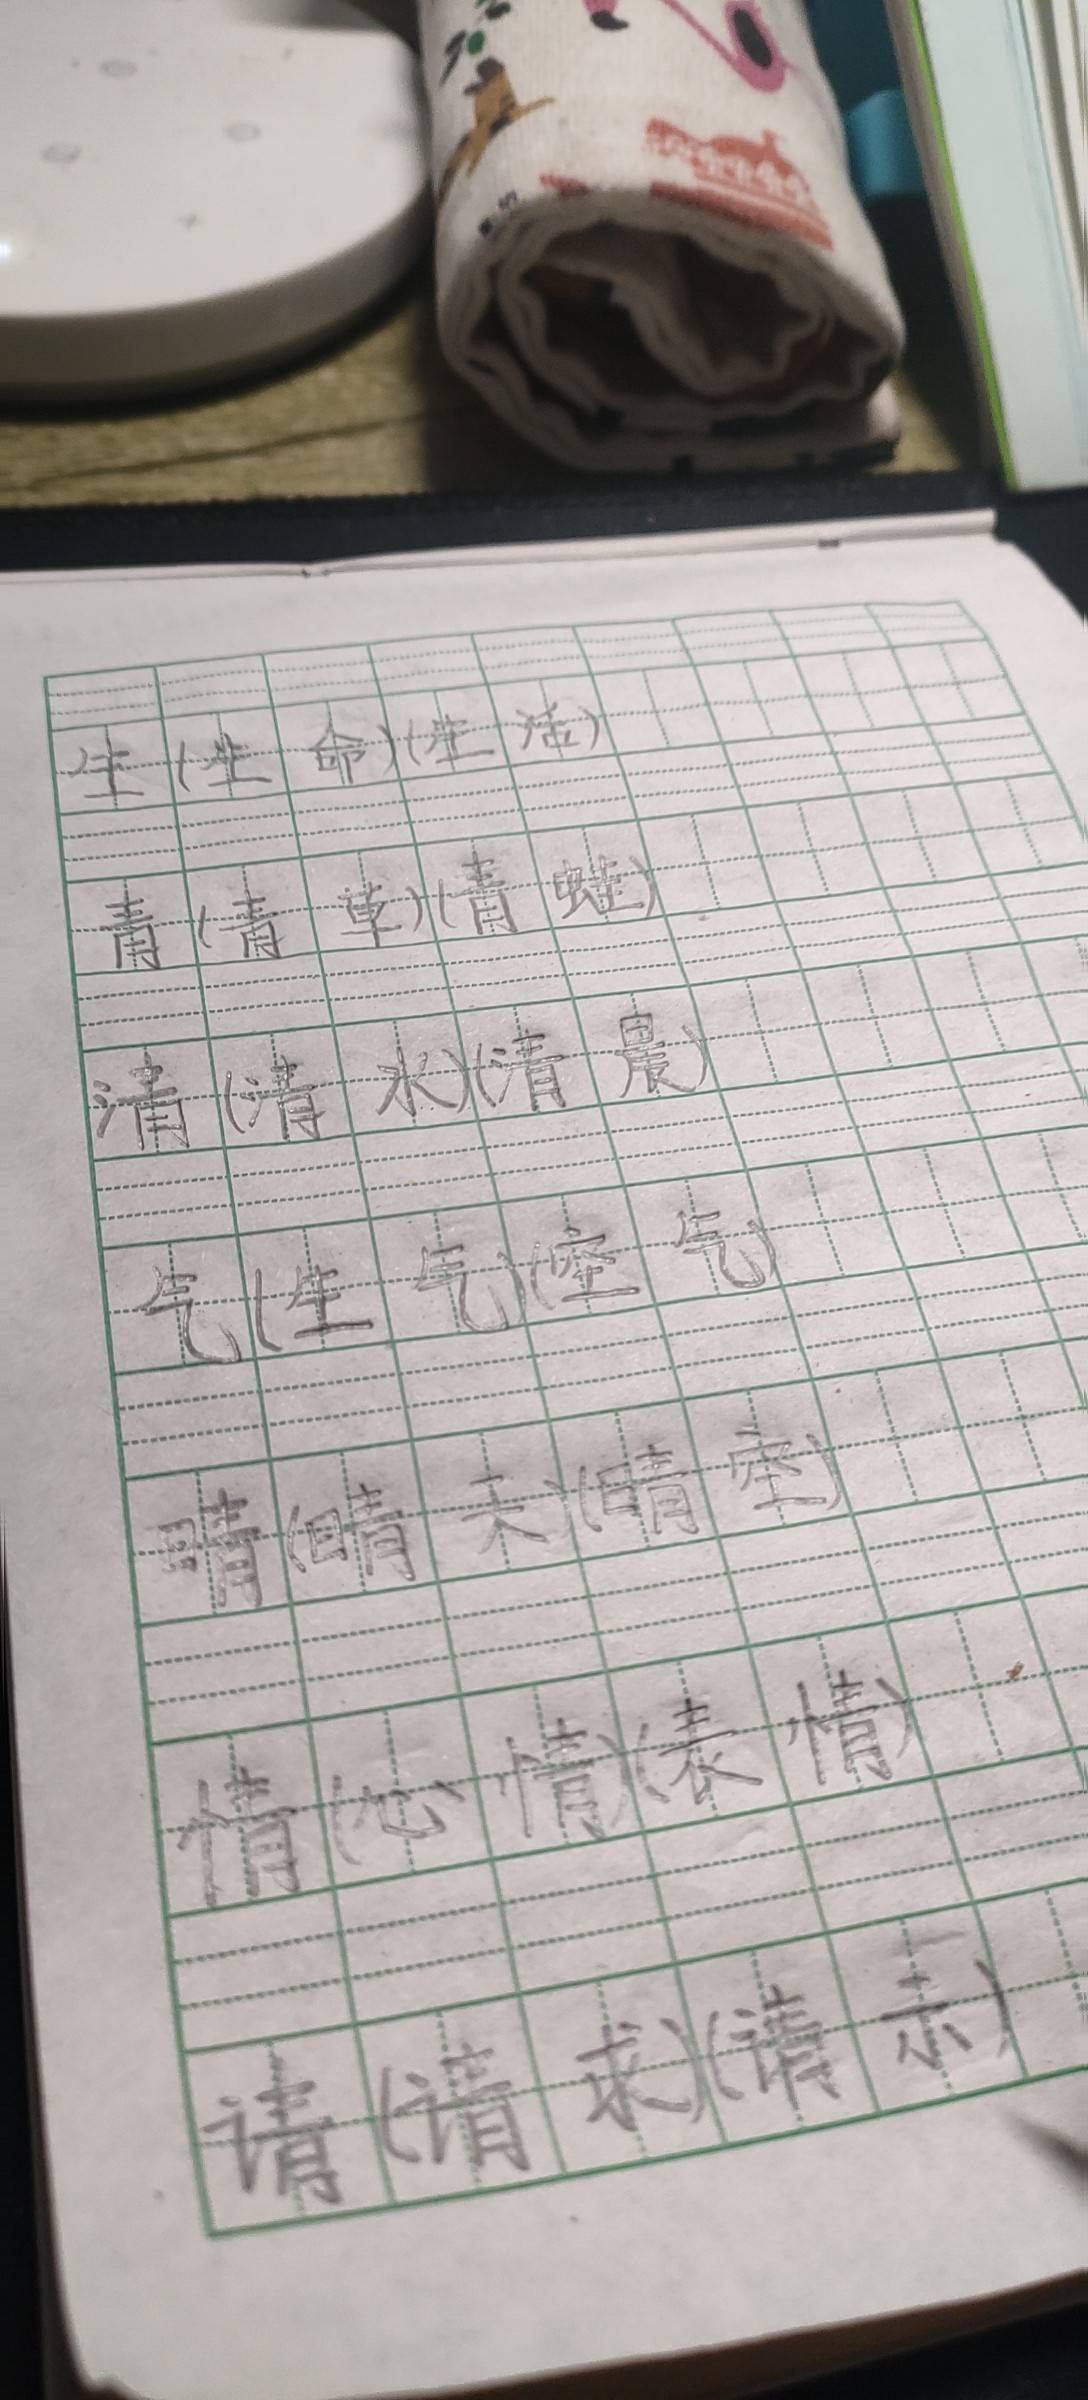 生(生命)(生活)
青(青草)(青蛙)
清(清水)(清晨)
气(生气)(空气)
晴(晴天)(晴空)
情(心情)(表情)
请(请求)(请示)